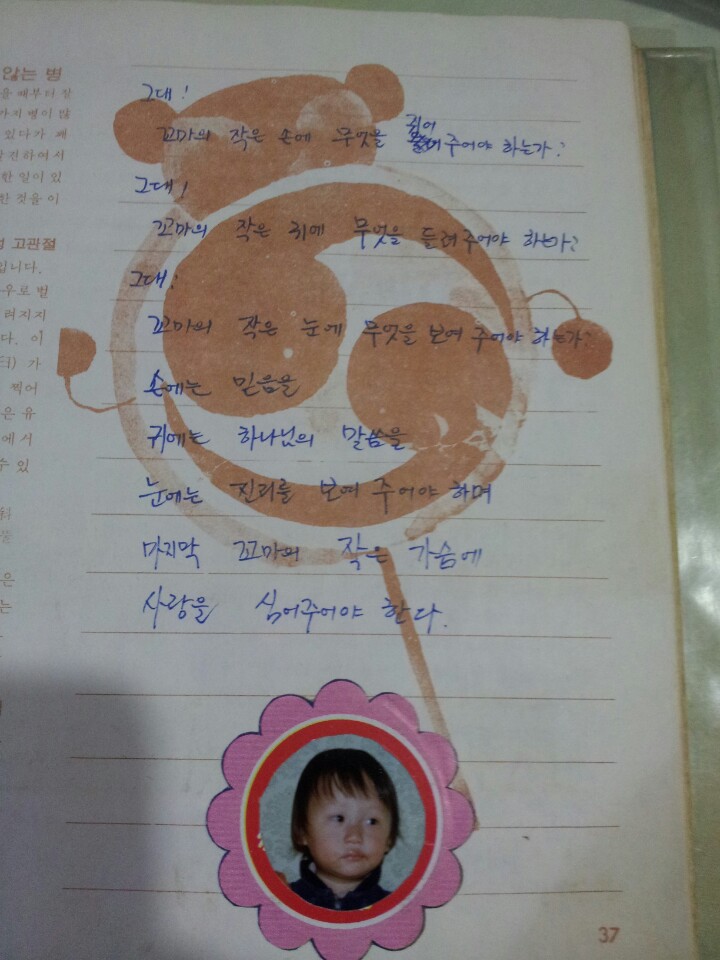 않는 병
을 때부터 잘
가지 병이 많
있다가 폐
발견하여서
한 일이 있
한 것을 이
성 고관절
입니다.
우로 벌
려지지
다. 이
가
찍어
은 유
에서
수 있
은
는
그대!
꼬마의 작은 손에 무엇을 쥐어 주어야 하는가?
그대!
꼬마의 작은 귀에 무엇을 들려 주어야 하는가?
그대!
꼬마의 작은 눈에 무엇을 보여 주어야 하는가?
손에는 믿음을
귀에는 하나님의 말씀을
눈에는 진리를 보여 주어야 하며
마지막 꼬마의 작은 가슴에
사랑을 심어주어야 한다.
37